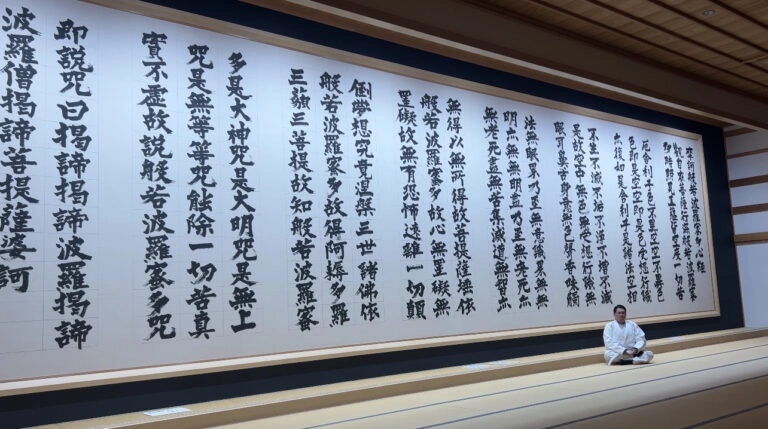 摩訶般若波羅蜜多心経
観自在菩薩行深般若波羅蜜
多時照見五蘊皆空度一切苦
厄舎利子色不異空空不異色
色即是空空即是色受想行識
亦復如是舎利子是諸法空相
不生不滅不垢不浄不増不減
是故空中無色無受想行識無
眼耳鼻舌身意無色聲香味觸
法無眼界乃至無意識界無無
明亦無無明盡乃至無老死亦
無老死盡無苦集滅道無智亦
無得以無所得故菩提薩埵依
般若波羅蜜多故心無罣礙無
罣礙故無有恐怖遠離一切顛
倒夢想究竟涅槃三世諸佛依
般若波羅蜜多故得阿耨多羅
三藐三菩提故知般若波羅蜜
多是大神咒是大明咒是無上
咒是無等等咒能除一切苦真
實不虚故説般若波羅蜜多咒
即説咒曰揭諦揭諦波羅揭諦
波羅僧揭諦菩提薩婆訶